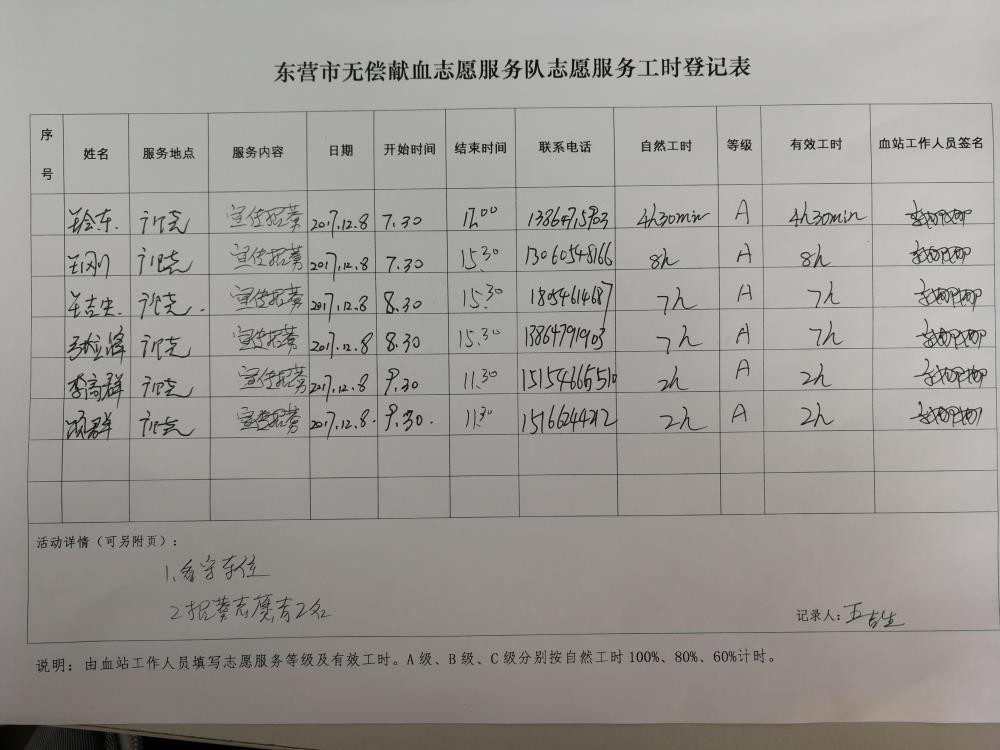 东营市无偿献血志愿服务队志愿服务工时登记表
序号 姓名 服务地点 服务内容 日期 开始时间 结束时间 联系电话 自然工时 等级 有效工时 血站工作人员签名
宣传招募 2017.12.8 7.30 12.00 13864715903 4h30min A 4h30min
王刚 宣传招募 2017.12.8 7.30 15.30 13060548166 8h A 8h
宣传招募 2017.12.8 8.30 15.30 18054614687 7h A 7h
宣传招募 2017.12.8 8.30 15.30 13864791903 7h A 7h
李高群 宣传招募 2017.12.8 9.30 11.30 15154665510 2h A 2h
宣传招募 2017.12.8. 9.30. 11.30 15166244212 2h A 2h
活动详情（可另附页）：
1.看守车位
2.招募志愿者2名
记录人:
说明: 由血站工作人员填写志愿服务等级及有效工时。A级、B级、C级分别按自然工时100%、80%、60%计时。